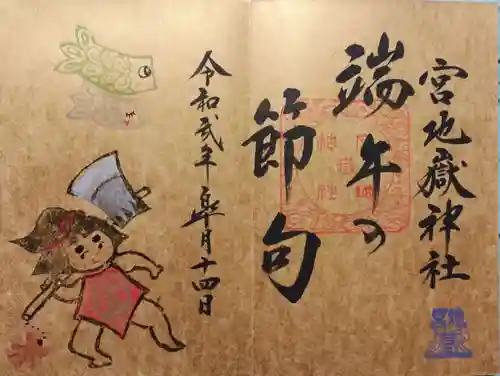 宮地嶽神社
端午の
節句
令和弐年皐月十四日